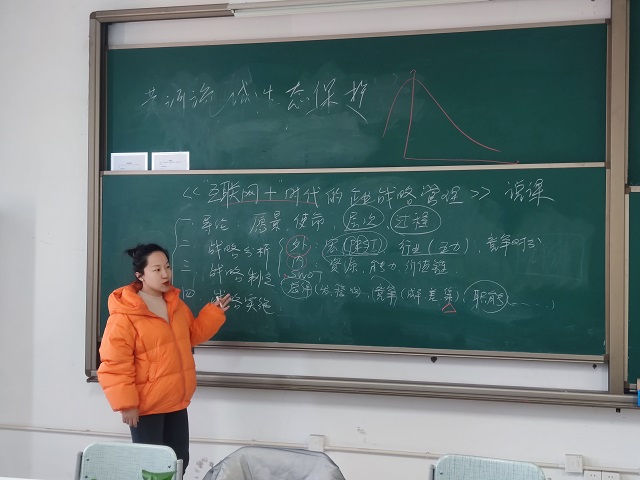 黄河流域生态保护
《“互联网＋”时代的企业战略管理》说课
一 导论：愿景、使命、层次、过程
二、战略分析 外：宏(PEST) 行业(五力)、竞争对手
内 资源、能力、价值链
三、战略制定 SWOT
总体(发、稳、收)、竞争(成、差、集)、职能……
四 战略实施